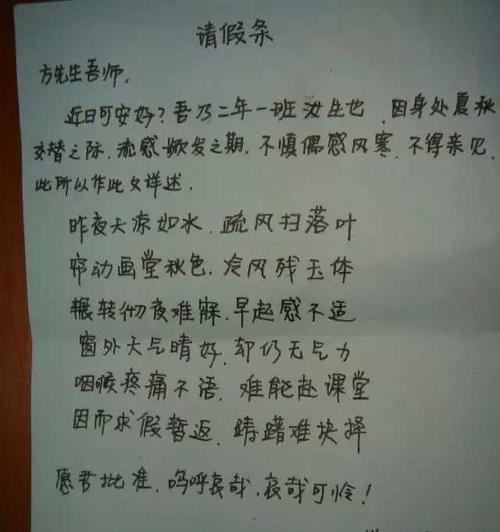 请假条
方先生吾师,
近日可安好?吾乃二年一班汝生也 因身处夏秋
交替之际.流感煥发之期.不慎偶感风寒.不得亲见.
此所以作此文详述.
昨夜天凉如水.疏风扫落叶
帘动画堂秋色.冷风残玉体
辗转彻夜难寐.早起感不适
窗外天气晴好.却仍无气力
咽喉疼痛不语.难能赴课堂
因而求假暂返.踌躇难抉择
愿君批准.呜呼哀哉.哀哉可怜!